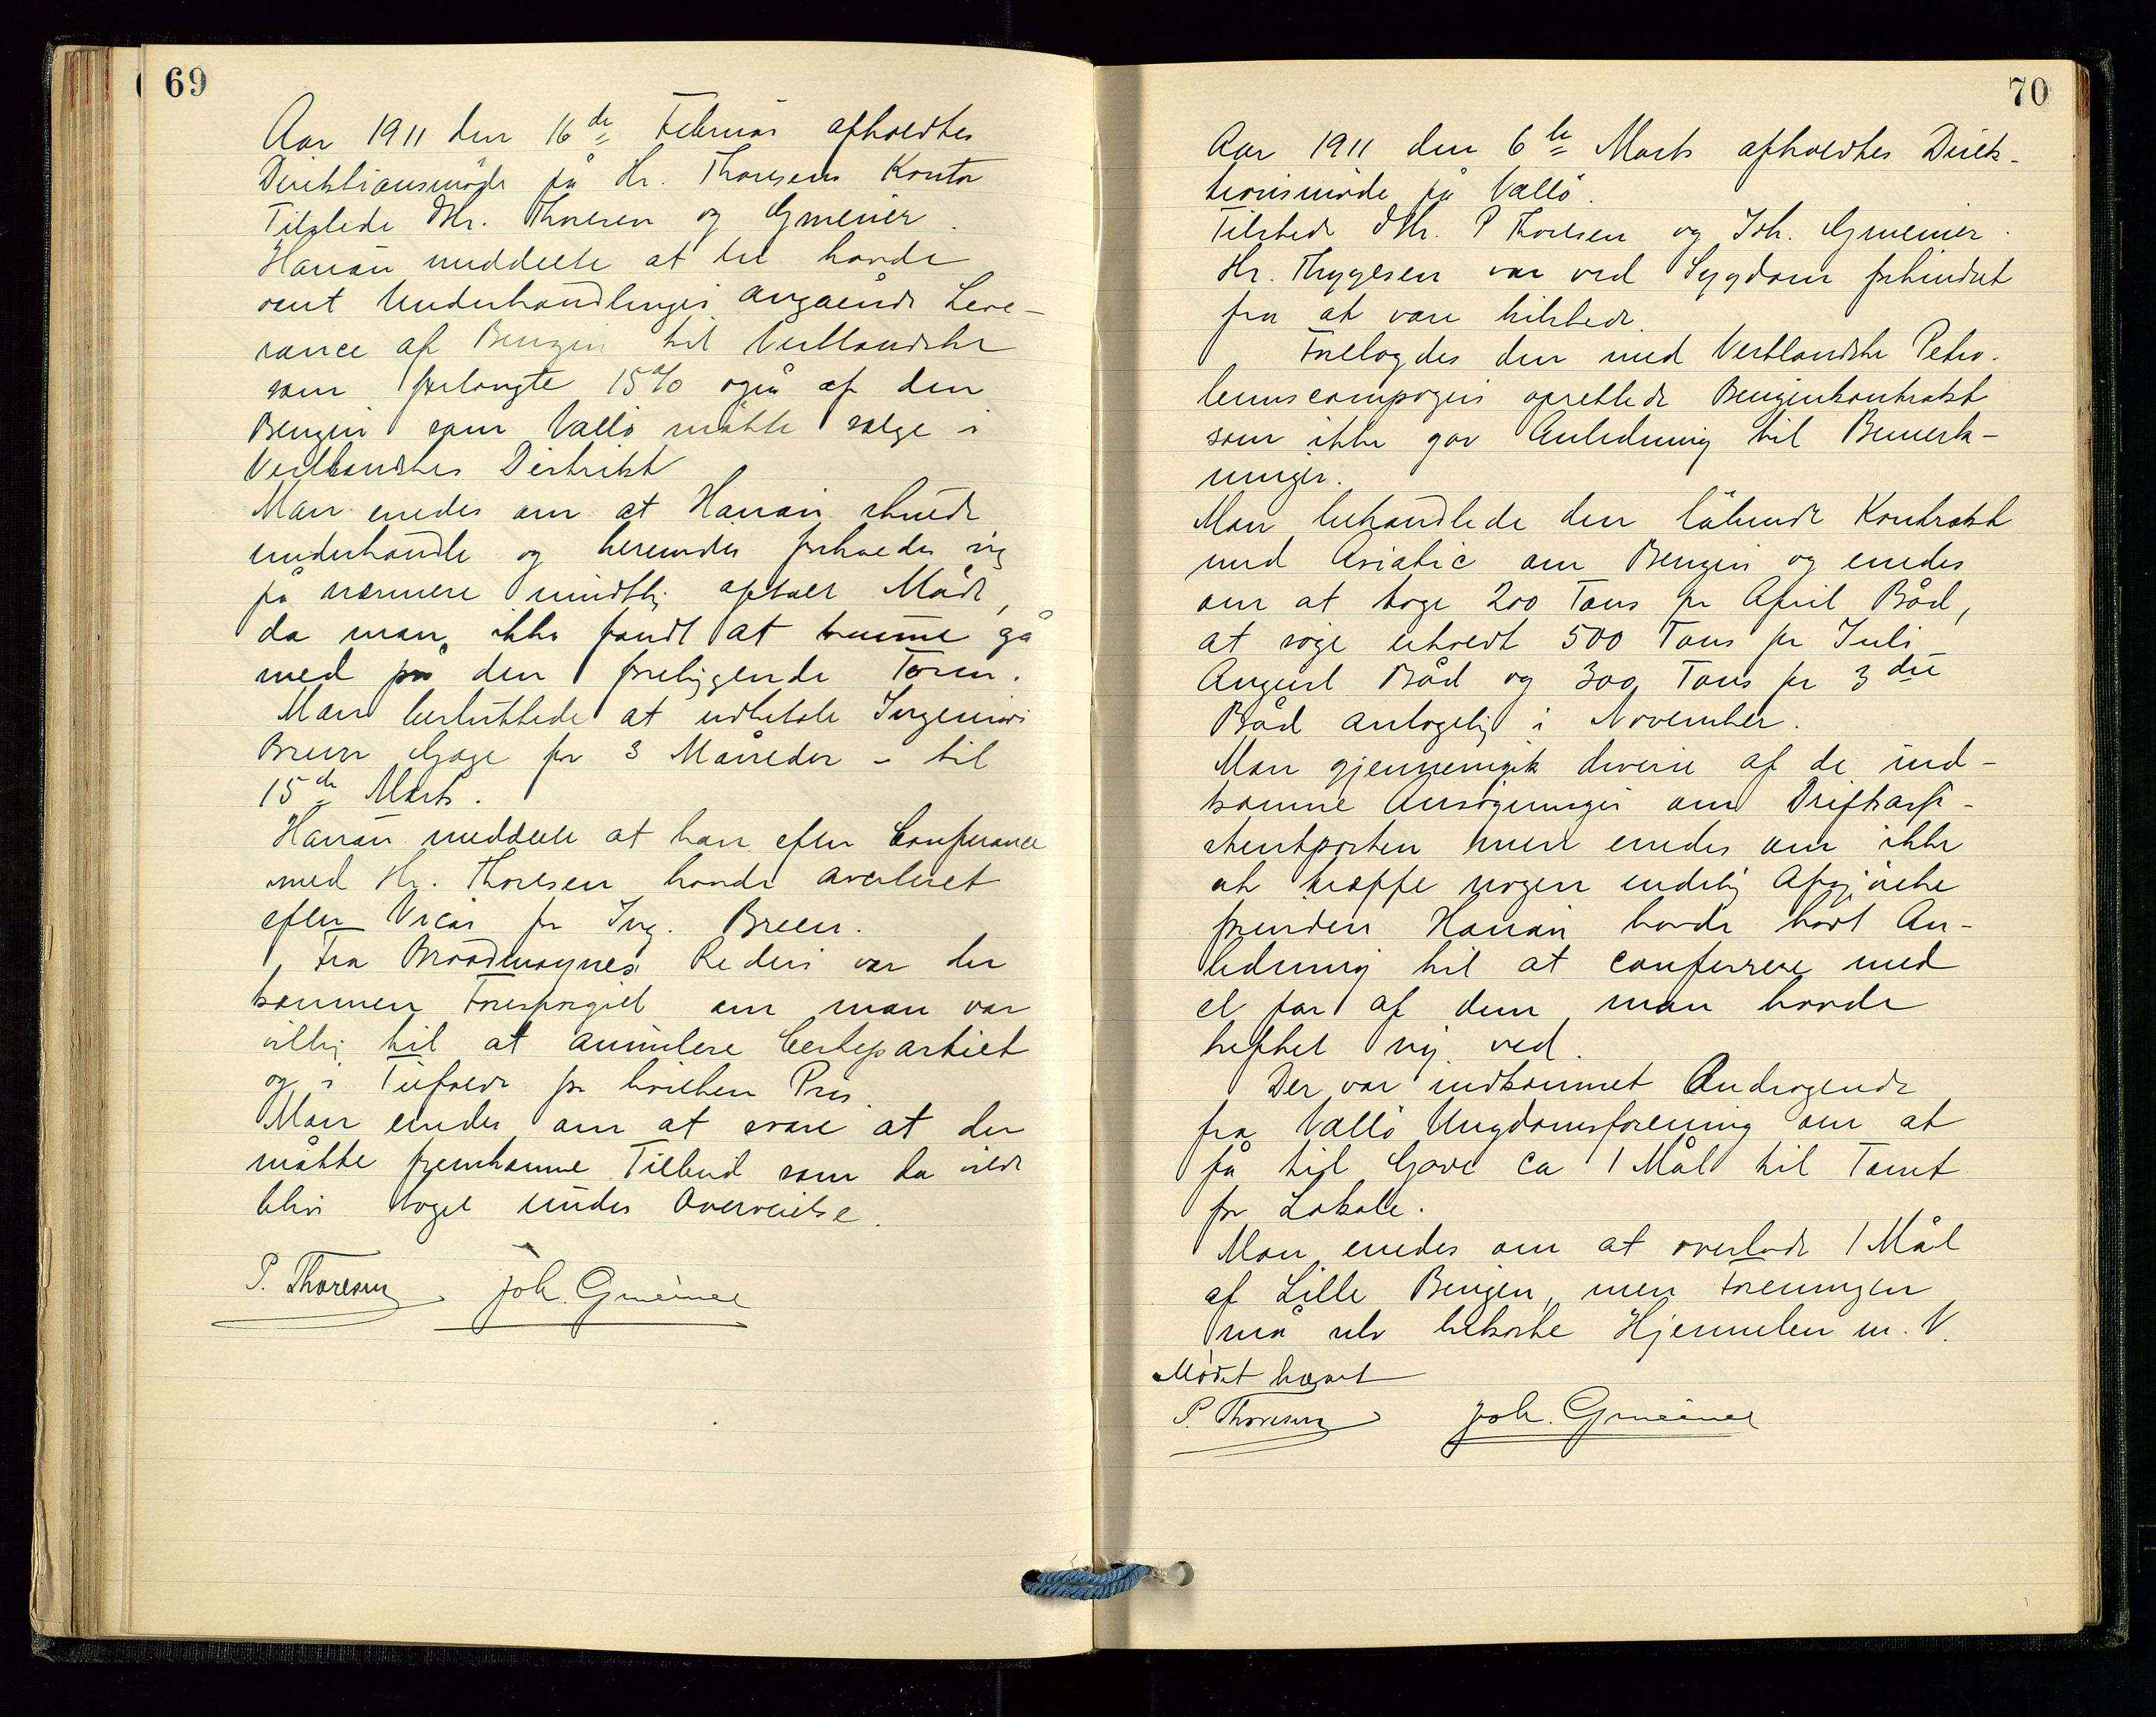 69
Aar 1911 den 16de Februar afholdtes
Direktionsmöde på Hr. Thoresens Kontor
Tilstede DHr. Thoresen og Gmeiner.
Hanan meddelte at det havde
vært Underhandlinger angående Leve-
rance af Benzin til Vestlandske
som forlangte 15% også af den
Benzin som Vallö måtte sælge i
Vestlandskes Distrikt
Man enedes om at Hanan skulde
underhandle og herunder forholde sig
på nærmere mundtlig aftalt Måde,
da man ikke fandt at kunne gå
med på den foreliggende Form.
Man besluttede at udbetale Ingeniör
Breen Gage for 3 Måneder - til
15de Marts.
Hanan meddelte at han efter Conferance
med Hr. Thoresen havde averteret
efter Vicar for Ing. Breen.
Fra Broadmaynes Rederi var der
kommen Forespörgsel om man var
villig til at annulere Certepartiet
og i Tilfælde for hvilken Pris.
Man enedes om at svare at der
måtte fremkomme Tilbud som da vilde
blive taget under Overveielse.
P. Thoresen Joh. Gmeiner
70
Aar 1911 den 6te Marts afholdtes Direk-
tionsmöde på Vallö.
Tilstede DHr. P Thoresen og Joh. Gmeiner.
Hr. Thygesen var ved Sygdom forhindret
fra at være tilstede.
Forelagdes den med Vestlandske Petro-
leumscompagni oprettede Benzinkontrakt
som ikke gav Anledning til Bemerk-
ninger.
Man behandlede den löbende Kontrakt
med Asiatic om Benzin og enedes
om at tage 200 Tons pr April Båd,
at söge erholdt 500 Tons pr Juli
August Båd og 300 Tons pr 3die
Båd antagelig i November.
Man gjennemgik diverse af de ind-
komne Ansögninger om Driftsassi-
stentposten men enedes om ikke
at træffe nogen endelig Afgjörelse
forinden Hanan havde havt An-
ledning til at conferrere med
et par af dem man havde
heftet sig ved.
Der var indkommet Andragende
fra Vallö Ungdomsforening om at
få til Gave ca 1 Mål til Tomt
for Lokale.
Man enedes om at overlade 1 Mål
af Lille Bingen, men Foreningen
må selv bekoste Hjemmelen m. V.
Mödet hævet
P. Thoresen Joh. Gmeiner